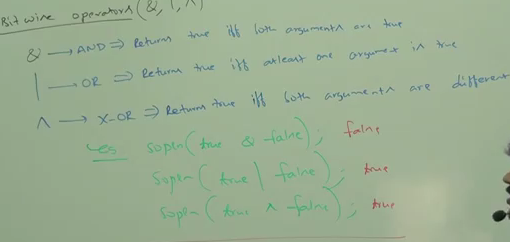 Bitwise operators (&, |, ^)
& → AND ⇒ Returns true iff both arguments are true
| → OR ⇒ Returns true iff atleast one argument is true
^ → X-OR ⇒ Returns true iff both arguments are different
eg: sopln(true & false); false
sopln(true | false); true
sopln(true ^ false); true